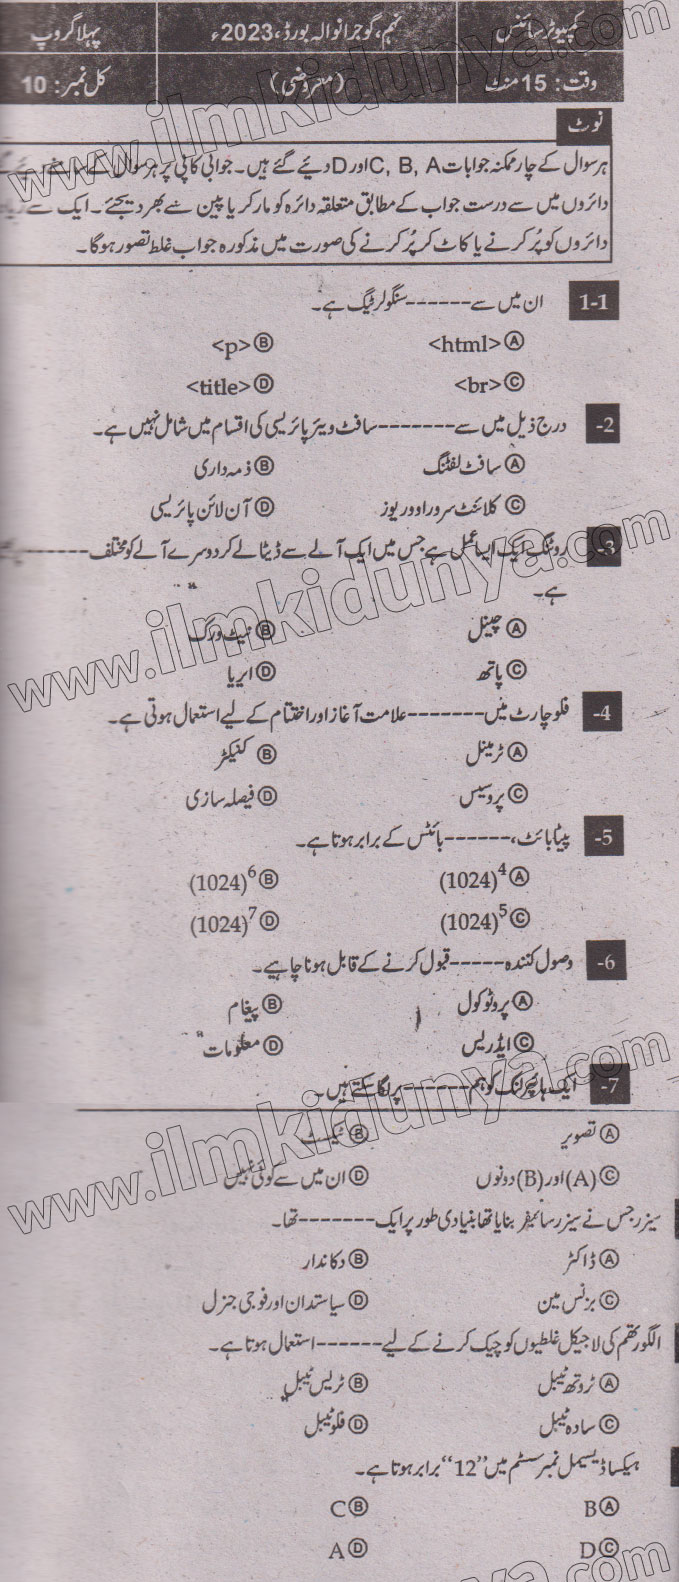 کمپیوٹر سائنس نہم، گوجرانوالہ بورڈ، 2023ء پہلا گروپ
وقت: 15 منٹ (معروضی) کل نمبر: 10
نوٹ
ہر سوال کے چار ممکنہ جوابات C, B, A اور D دیئے گئے ہیں۔ جوابی کاپی پر ہر سوال کے سامنے دیئے گئے
دائروں میں سے درست جواب کے مطابق متعلقہ دائرہ کو مارکر یا پین سے بھر دیجئے۔ ایک سے زیادہ
دائروں کو پُر کرنے یا کاٹ کر پُر کرنے کی صورت میں مذکورہ جواب غلط تصور ہوگا۔
1-1 ان میں سے ------ سنگولر ٹیگ ہے۔
Ⓐ <html> Ⓑ <p>
Ⓒ <br> Ⓓ <title>
-2 درج ذیل میں سے ------- سافٹ ویئر پائریسی کی اقسام میں شامل نہیں ہے۔
Ⓐ سافٹ لفٹنگ Ⓑ ذمہ داری
Ⓒ کلائنٹ سرور اوور یوز Ⓓ آن لائن پائریسی
-3 روٹنگ ایک ایسا عمل ہے جس میں ایک آلے سے ڈیٹا لے کر دوسرے آلے کو مختلف ------
ہے۔
Ⓐ چینل Ⓑ نیٹ ورک
Ⓒ پاتھ Ⓓ ایریا
-4 فلو چارٹ میں ------- علامت آغاز اور اختتام کے لیے استعمال ہوتی ہے۔
Ⓐ ٹرمینل Ⓑ کنیکٹر
Ⓒ پروسیس Ⓓ فیصلہ سازی
-5 پیٹا بائٹ، ------ بائٹس کے برابر ہوتا ہے۔
Ⓐ (1024)⁴ Ⓑ (1024)⁶
Ⓒ (1024)⁵ Ⓓ (1024)⁷
-6 وصول کنندہ ----- قبول کرنے کے قابل ہونا چاہیے۔
Ⓐ پروٹوکول Ⓑ پیغام
Ⓒ ایڈریس Ⓓ معلومات
-7 ایک ہائپر لنک کو ہم ------ پر لگا سکتے ہیں۔
Ⓐ تصویر Ⓑ ٹیکسٹ
Ⓒ (A) اور (B) دونوں Ⓓ ان میں سے کوئی نہیں
سیزر جس نے سیزر سائیفر بنایا تھا بنیادی طور پر ایک ------- تھا۔
Ⓐ ڈاکٹر Ⓑ دکاندار
Ⓒ بزنس مین Ⓓ سیاستدان اور فوجی جنرل
الگورتھم کی لاجیکل غلطیوں کو چیک کرنے کے لیے ------ استعمال ہوتا ہے۔
Ⓐ ٹروتھ ٹیبل Ⓑ ٹریس ٹیبل
Ⓒ سادہ ٹیبل Ⓓ فلو ٹیبل
ہیکسا ڈیسیمل نمبر سسٹم میں "12" برابر ہوتا ہے۔
Ⓐ B Ⓑ C
Ⓒ D Ⓓ A
www.ilmkidunya.com
www.ilmkidunya.com
www.ilmkidunya.com